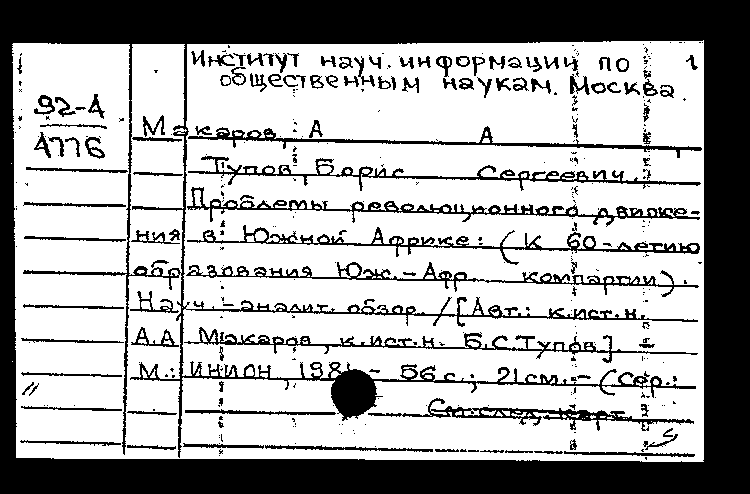 Институт науч. информации по 1
общественным наукам. Москва.
92-4
4776
Макаров, А А
Тупов, Борис Сергеевич.
Проблемы революционного движе-
ния в Южной Африке: (К 60-летию
образования Юж.-Афр. компартии).
Науч.-аналит. обзор. / [Авт.: к.ист.н.
А.А Макаров, к.ист.н. Б.С.Тупов]. -
М.: ИНИОН, 198 - 56 с.; 21 см. - (Сер.:
См. след. карт.